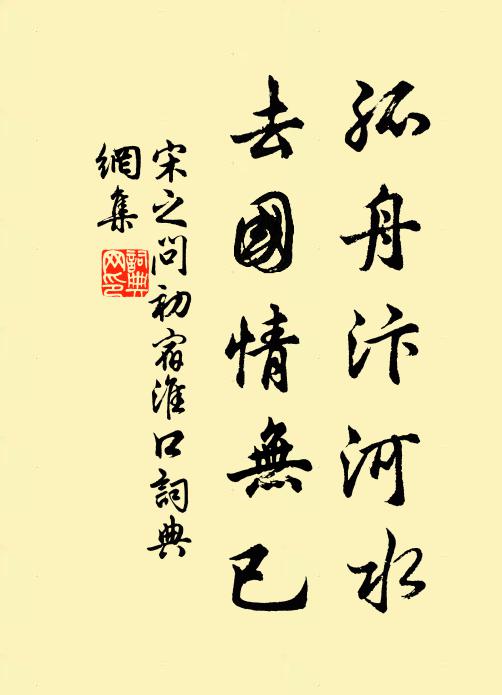 孤舟汴河水
去國情無已
宋之问初宿淮口詞典
網集
詞典
网印